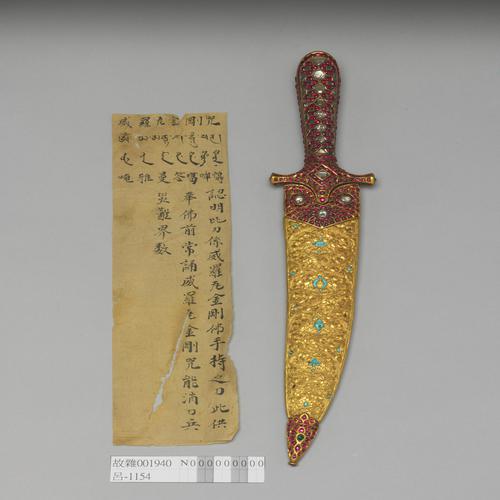 威羅瓦金剛咒
唵雅曼答噶
認明此刀係威羅瓦金剛佛手持之刀此供
奉佛前常誦威羅瓦金剛咒能消刀兵
災難界數
故雜001940 N000000000
呂-1154